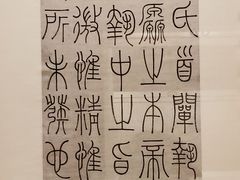 氏首闡執
厵之本帝
執中之旨
微惟精惟
所未發也